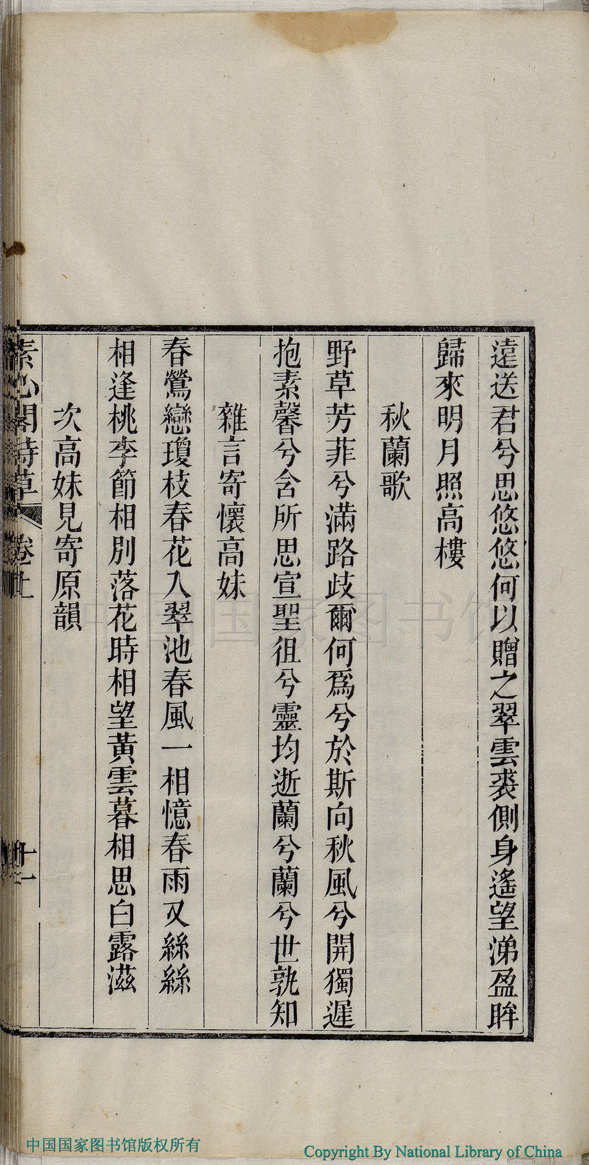 遠送君兮思悠悠何以贈之翠雲裘側身遙望涕盈眸
歸來明月照高樓
秋蘭歌
野草芳菲兮滿路歧爾何爲兮於斯向秋風兮開獨遲
抱素馨兮含所思宣聖徂兮靈均逝蘭兮蘭兮世孰知
雜言寄懷高妹
春鶯戀瓊枝春花入翠池春風一相憶春雨又絲絲
相逢桃李節相別落花時相望黃雲暮相思白露滋
次高妹見寄原韻
素心閣詩草 卷上
十一
中国国家图书馆
中国国家图书馆版权所有
Copyright By National Library of China